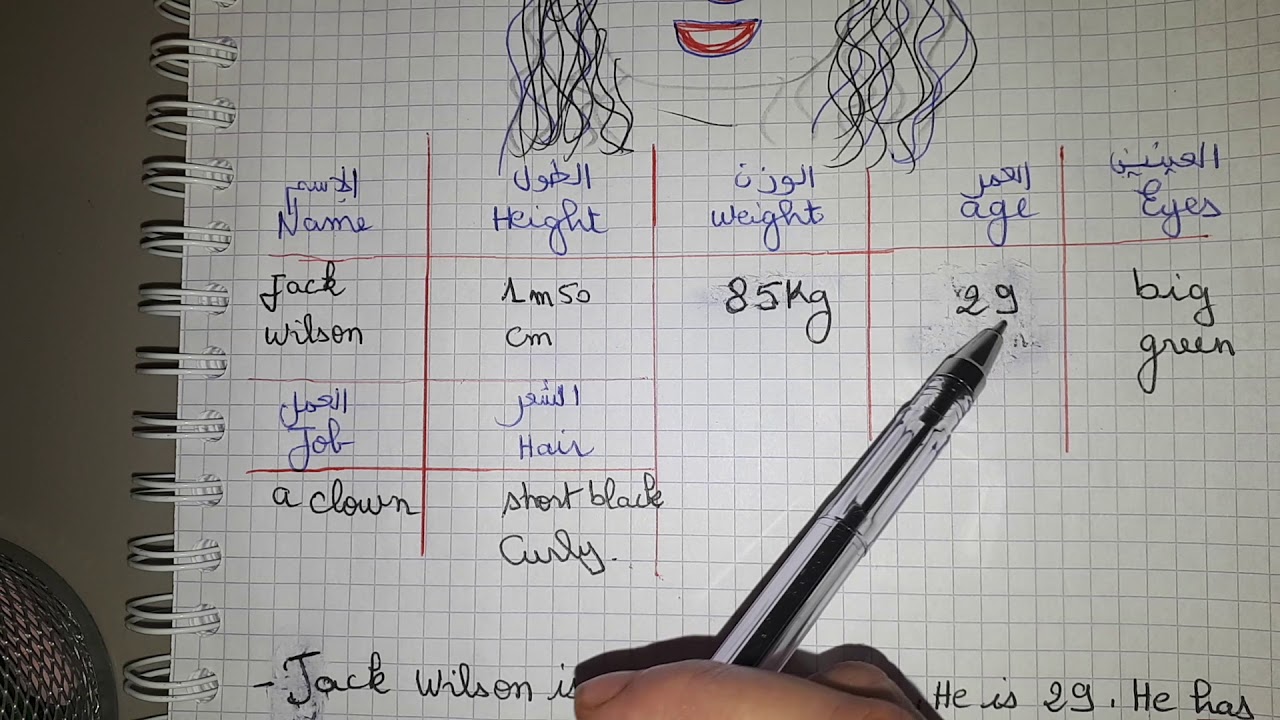 الإسم الطول الوزن العمر العينين
Name Height Weight age Eyes
Jack 1m50 85Kg 29 big
Wilson cm green
العمل الشعر
Job Hair
a clown short black
Curly.
- Jack Wilson is . He is 29. He has